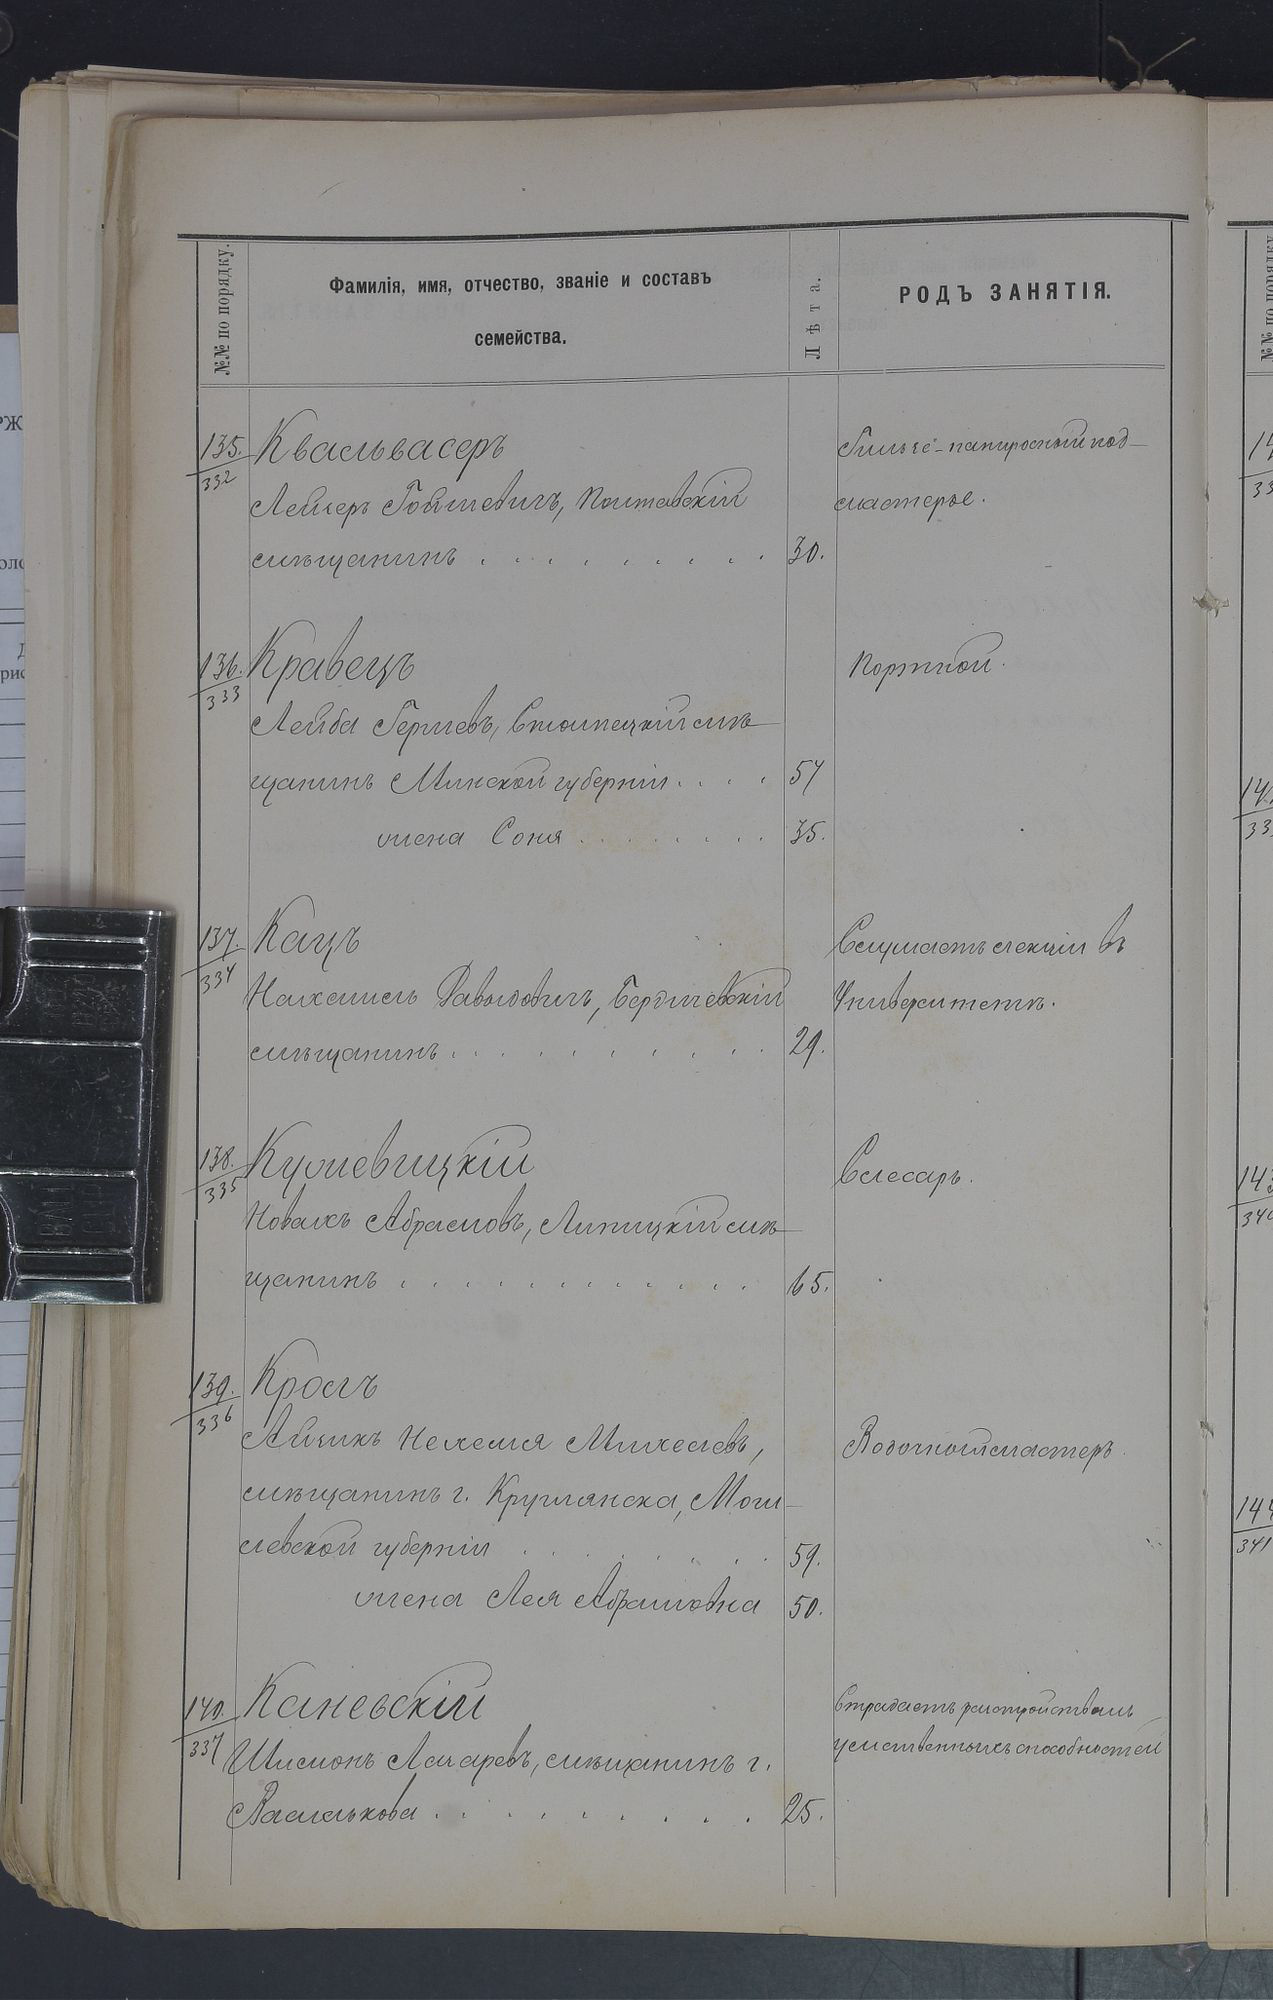 №№ по порядку.
Фамилія, имя, отчество, званіе и составъ
семейства.
Лѣта.
РОДЪ ЗАНЯТІЯ.
135.
332
Квасьвасеръ
Гильзе-папиросный под-
Лейзеръ Гойшевичъ, Полтавскій
мастерье.
мѣщанинъ . . . . . . . . . 30.
136.
333
Кравецъ
Портной.
Лейба Гершевъ, Столпецкій мѣ-
щанинъ Минской губерніи . . . . 57
жена Соня . . . . . . . . 35.
137.
334
Кацъ
Слушаетъ лекціи въ
Давыдовичъ, Бердичевскій
Университетѣ.
мѣщанинъ . . . . . . . . . . 29.
138.
335
Слесарь.
Абрамовъ, Липицкій мѣ-
щанинъ . . . . . . . . . . . . 65.
139.
336
Кролъ
Айзикъ Нехемія Михелевъ,
Водочный мастеръ.
мѣщанинъ г. Круглянска, Моги-
левской губерніи . . . . . . . 59.
жена Лея Абрамовна 50.
140.
337
Каневскій
Страдаетъ разстройствомъ
Шимонъ Лазаревъ, мѣщанинъ г.
умственныхъ способностей
Василькова . . . . . . . . . . 25.